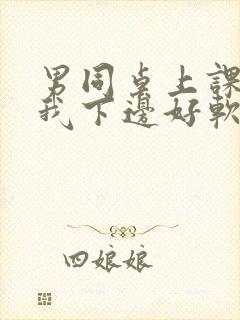 男同桌上課
我下邊好軟
四娘娘